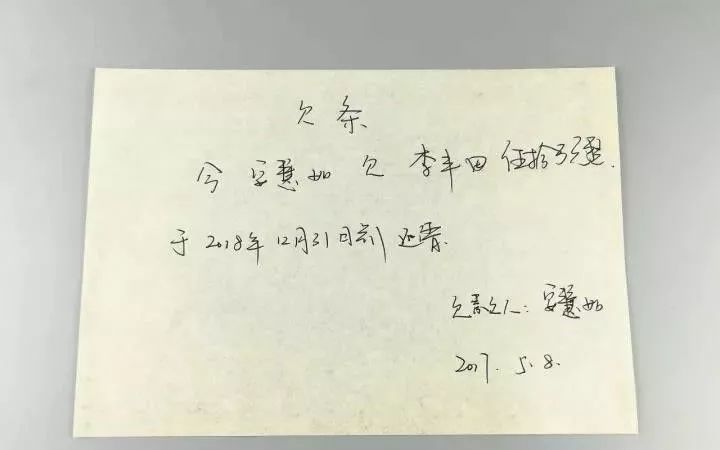 欠条
今 安慧如 欠 李丰田 伍拾万整.
于 2018年12月31日前 还清.
欠款人: 安慧如
2017. 5. 8.